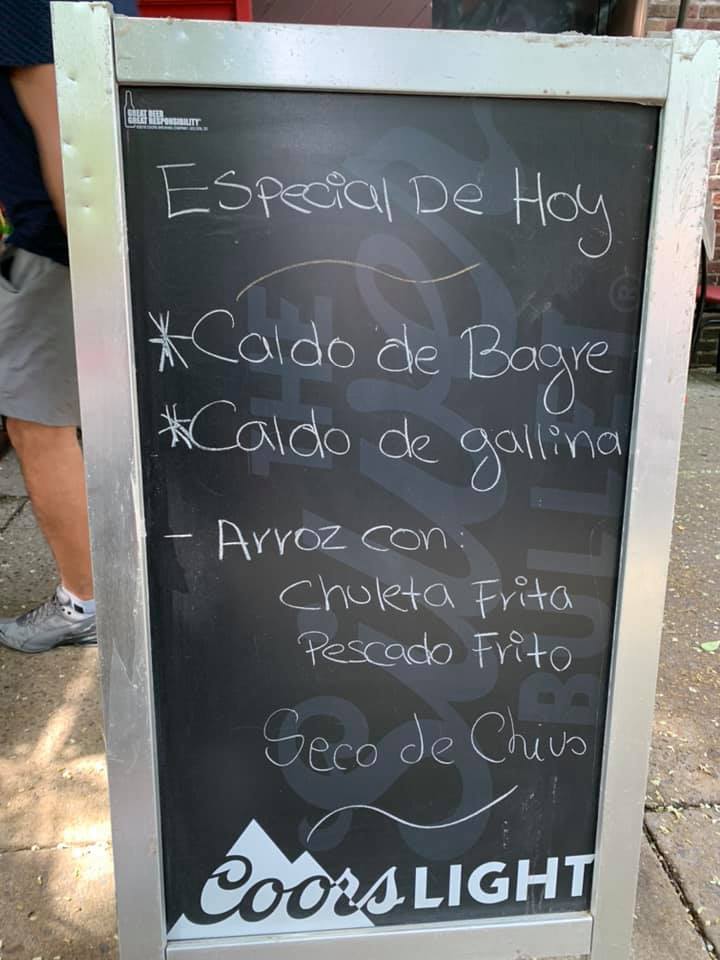 GREAT BEER
GREAT RESPONSIBILITY®
Especial De Hoy
*Caldo de Bagre
*Caldo de gallina
- Arroz con:
Chuleta Frita
Pescado Frito
Seco de Chivo
THE
Silver
BULLET®
Coors LIGHT